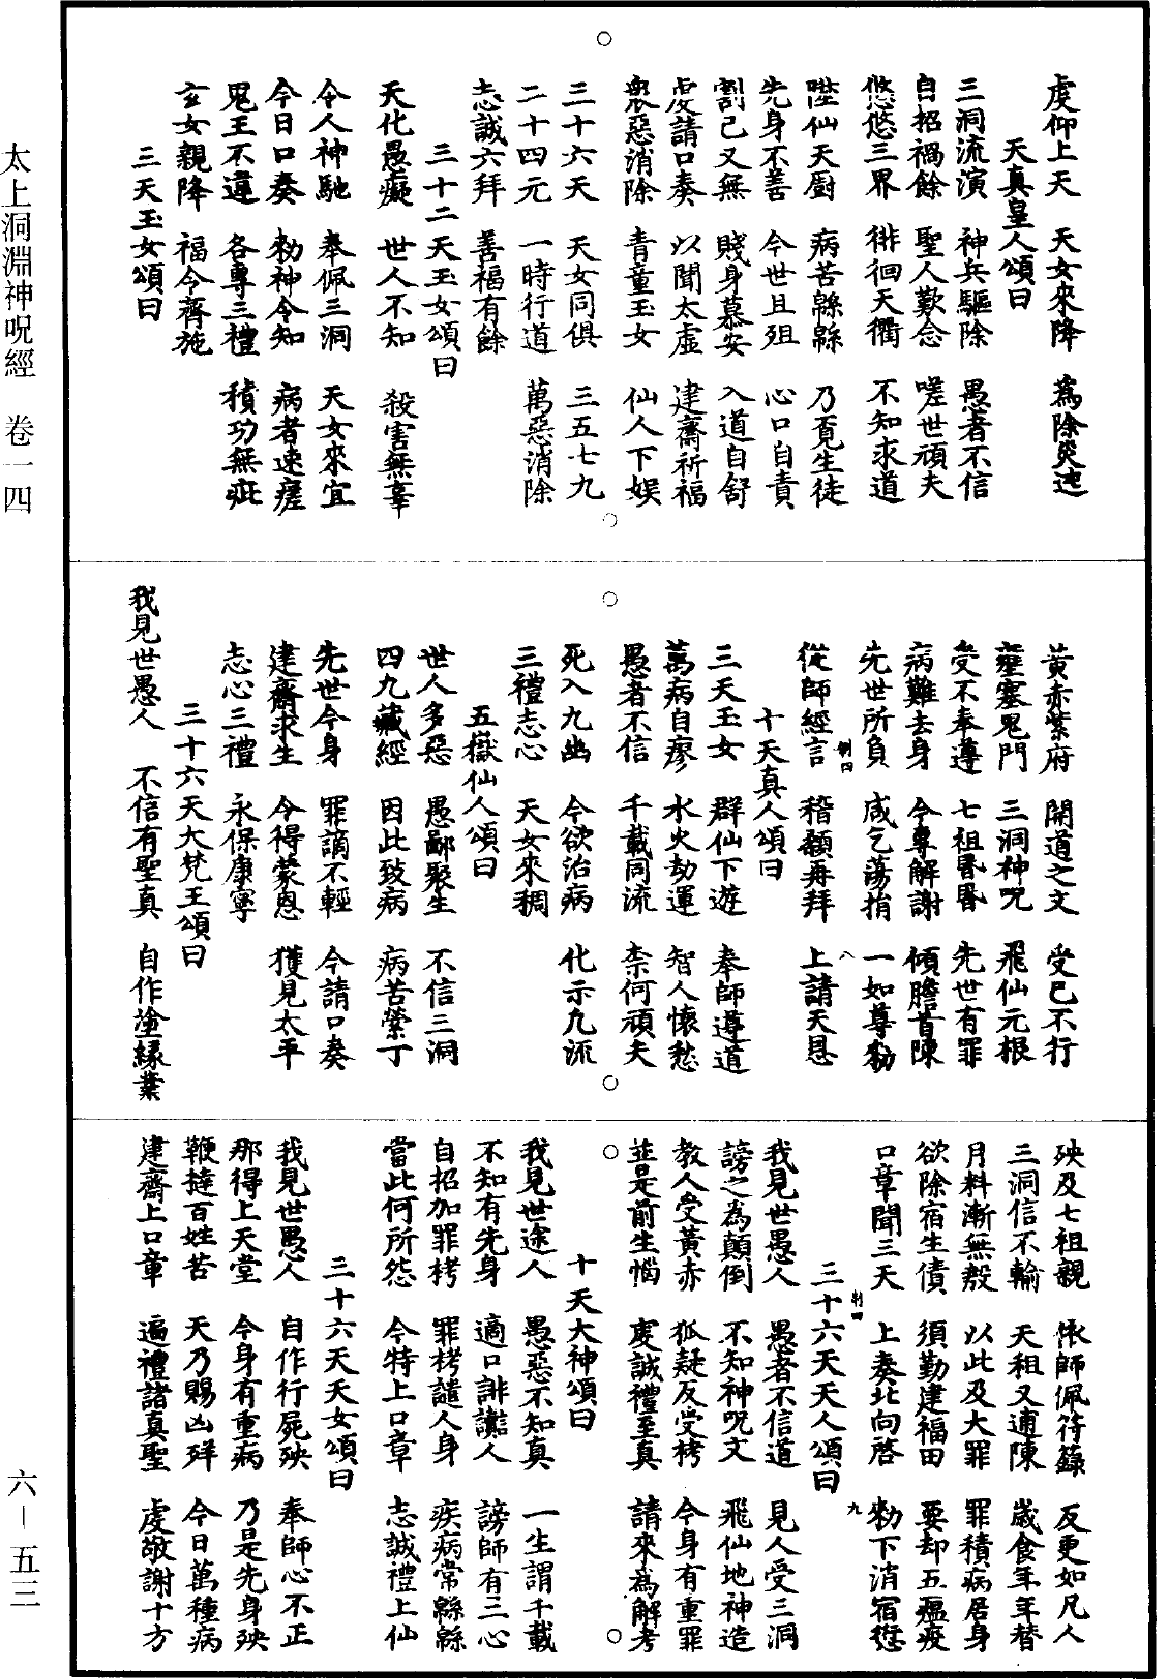 太上洞淵神呪經 卷一四
虔仰上天 天女來降 爲除災迍
天真皇人頌曰
三洞流演 神兵驅除 愚者不信
自招禍餘 聖人歎念 嗟世頑夫
悠悠三界 徘徊天衢 不知求道
陛仙天廚 病苦緜緜 乃覔生徒
先身不善 今世且殂 心口自責
割己又無 賤身慕安 入道自舒
虔請口奏 以聞太虛 建齋祈福
衆惡消除 青童玉女 仙人下娛
三十六天 天女同俱 三五七九
二十四元 一時行道 萬惡消除
志誠六拜 善福有餘
三十二天玉女頌曰
天化愚癡 世人不知 殺害無辜
令人神馳 奉佩三洞 天女來宜
今日口奏 勑神令知 病者速瘥
鬼王不違 各專三禮 積功無疵
玄女親降 福今齊施
三天玉女頌曰
黃赤紫府 開道之文 受已不行
壅塞鬼門 三洞神呪 飛仙元根
受不奉遵 七祖昬昬 先世有罪
病難去身 今專解謝 傾膽首陳
先世所負 咸乞蕩捐 一如尊勑
制四 八
從師經言 稽顙再拜 上請天恩
十天真人頌曰
三天玉女 群仙下遊 奉師遵道
萬病自瘳 水火劫運 智人懷愁
愚者不信 千載同流 柰何頑夫
死入九幽 今欲治病 化示九流
三禮志心 天女來稠
五嶽仙人頌曰
世人多惡 愚鄙聚生 不信三洞
四九藏經 因此致病 病苦縈丁
先世今身 罪謫不輕 今請口奏
建齋求生 今得蒙恩 獲見太平
志心三禮 永保康寧
三十六天大梵王頌曰
我見世愚人 不信有聖真 自作塗緣業
殃及七祖親 依師佩符籙 反更如凡人
三洞信不輸 天租又逋陳 歲食年年替
月料漸無殽 以此及大罪 罪積病居身
欲除宿生債 須勤建福田 要却五瘟疫
口章聞三天 上奏北向啓 勑下消宿愆
制四 九
三十六天天人頌曰
我見世愚人 愚者不信道 見人受三洞
謗之為顛倒 不知神呪文 飛仙地神造
教人受黃赤 狐疑反受栲 今身有重罪
並是前生惱 虔誠禮至真 請來為解考
十天大神頌曰
我見世途人 愚惡不知真 一生謂千載
不知有先身 適口誹讟人 謗師有二心
自招加罪栲 罪栲譴人身 疾病常緜緜
當此何所怨 今特上口章 志誠禮上仙
三十六天天女頌曰
我見世愚人 自作行屍殃 奉師心不正
那得上天堂 今身有重病 乃是先身殃
鞭撻百姓苦 天乃賜凶祥 今日萬種病
建齋上口章 遍禮諸真聖 虔敬謝十方
六－五三